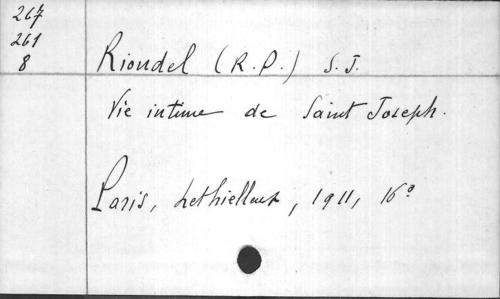 267
261
8
Riondel (R.P.) S.J.
Vie intime de Saint Joseph.
Paris, Lethielleux, 1911, 16°